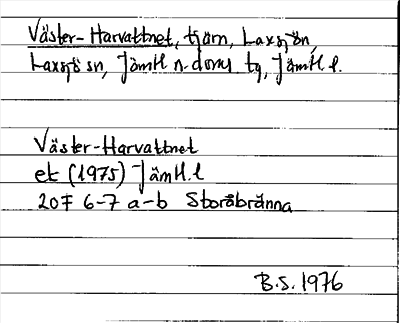 Väster-Harvattnet, tjärn, Laxsjön,
Laxsjö sn, Jämtl n. doms tg, Jämtl l.
Väster-Harvattnet
ek (1975) Jämtl. l
20F 6-7 a-b Storåbränna
B.S. 1976